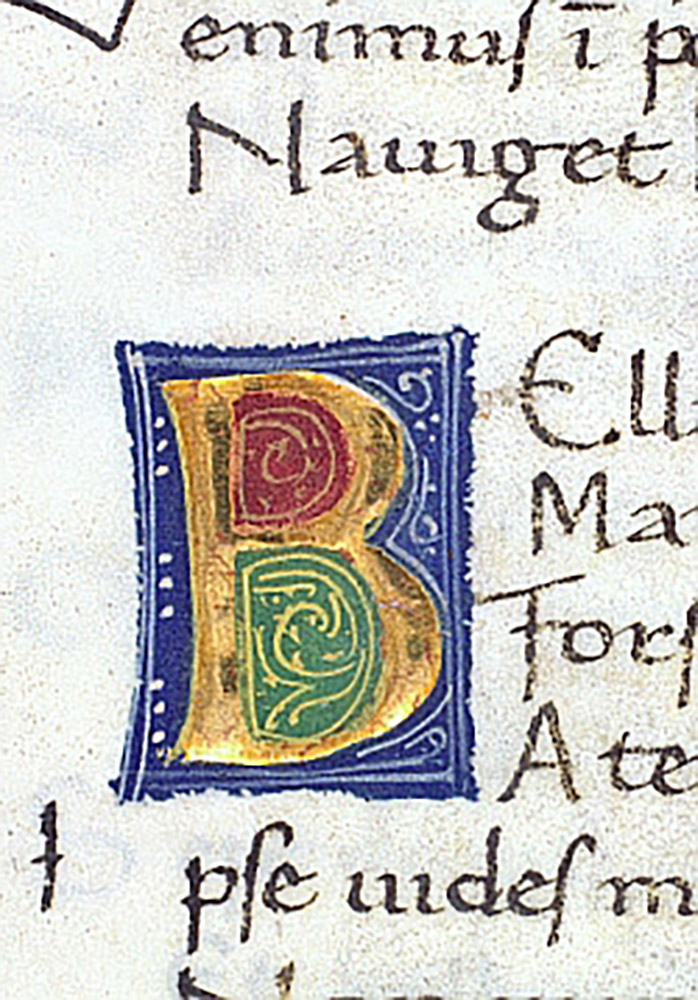 enimuſ ī p
Nauiget
B Ell
Ma
Forſ
A te
I pſe uideſ m